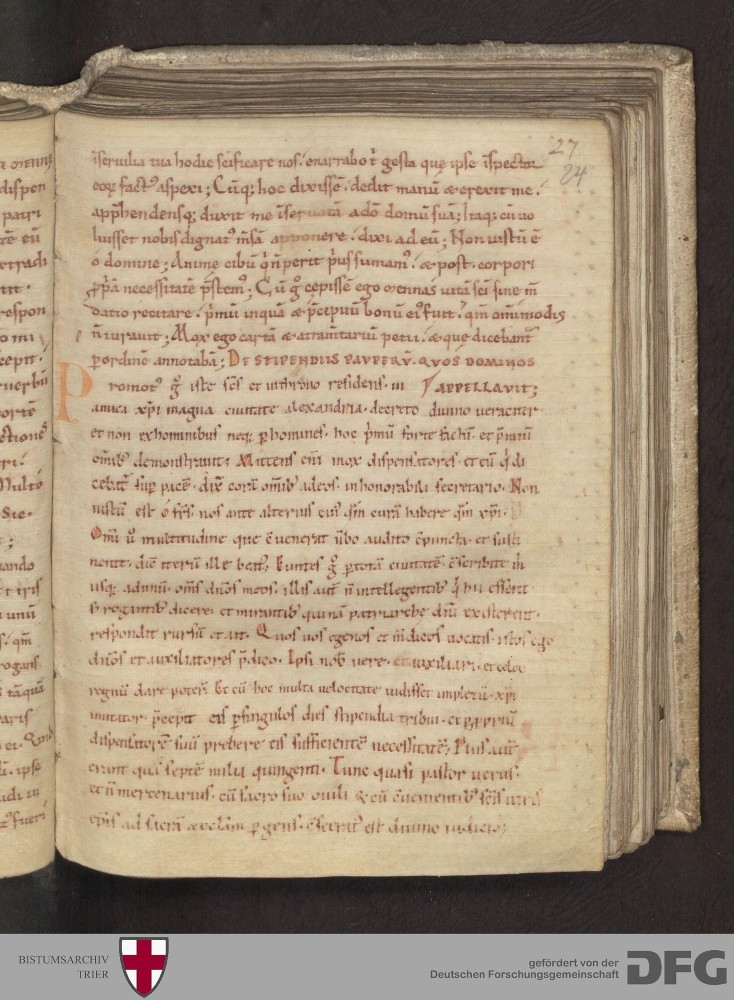 27
24
ĩseruilia tua hodie scificare nos. enarrabo t̃ gesta quę ipse ĩspector
eoꝝ fact᷒ aspexi; Cũq; hoc dixissẽ. dedit manũ & erexit me.
app̃hendensq; duxit me ad domũ suã; Itaq; cũ uo
luisset nobis dignat᷒ m̃sã apponere. dixi ad eũ; Non iustũ ẽ
o domine; Animę cibũ q̇ ñ perit p̃us sumam᷒. & post corpori
ꝓp̃ã necessitatẽ p̃stem᷒; Cũ g̊ cepissẽ ego orennas uitã sc̃i sine m̃
datio recitare. p̃mũ inquã & p̃cipuũ bonũ ei᷒ fuit. qm̃ omĩmodis
ñ iurauit; Mox ego cartã & atramtariũ petii. & quę dicebant᷒
ꝑ ordinẽ annotabã; DE STIPENDIIS PAVPERV̄. QVOS DOMINOS
Promot᷒ g̊ iste sc̃s et in throno residens. in APPELLAVIT;
amica xp̃i magna ciuitate alexandria. decreto diuino ueraciter.
et non ex hominibus neq; ꝑ homines. hoc p̃mũ forte factũ. et p̃mũ
om̃ib᷒ demonstrauit; Mittens eñi mox dispensatores. et eũ q̇ di
cebat᷒ sup̃ pacẽ. dix̃ corã om̃ib᷒ ad eos. in honorabili secretario. Non
iustũ est o fr̃s. nos ante alterius cui᷒ qm̃ curã habere qm̃ xp̃i.
Om̃i ũ multitudine que c̃uenerat ũbo audito c̃puncta. et susti
nente. dix̃ iterũ ille beat᷒. Euntes g̊ ꝑ totã ciuitatẽ. c̃scribite m̃
usq; ad unũ. om̃s dños meos. illis aut̃ ñ intellegentib᷒ q̇ hii essent
s; rogantib᷒ dicere. et mirantib᷒ qui nã patriarche dñi existerent.
respondit rursũ et ait. Quos uos egenos et m̃dicos uocatis. istos ego
dños et auxiliatores p̃dico. Ipsi nob᷒ vere. et auxiliari. et celoꝝ
regnũ dare potert̃. Et cũ hoc multa uelocitate uidisset impletũ. xp̃i
imitator. p̃cepit eis ꝑ singulos dies stipendia tribui. et ꝑ ꝓpriũ
dispensatorẽ suũ prebere eis sufficientẽ necessitatẽ; Plus aut̃
erant quã septẽ milia quingenti. Tunc quasi pastor verus.
et ñ mercenarius. cũ sacro suo ouili & cũ c̃uenientib᷒ sc̃is uiris
ep̃is ad sacrã ęccl̃am ꝑgens. c̃secrat᷒ est diuino iudicio;
BISTUMSARCHIV
TRIER
gefördert von der
Deutschen Forschungsgemeinschaft
DFG